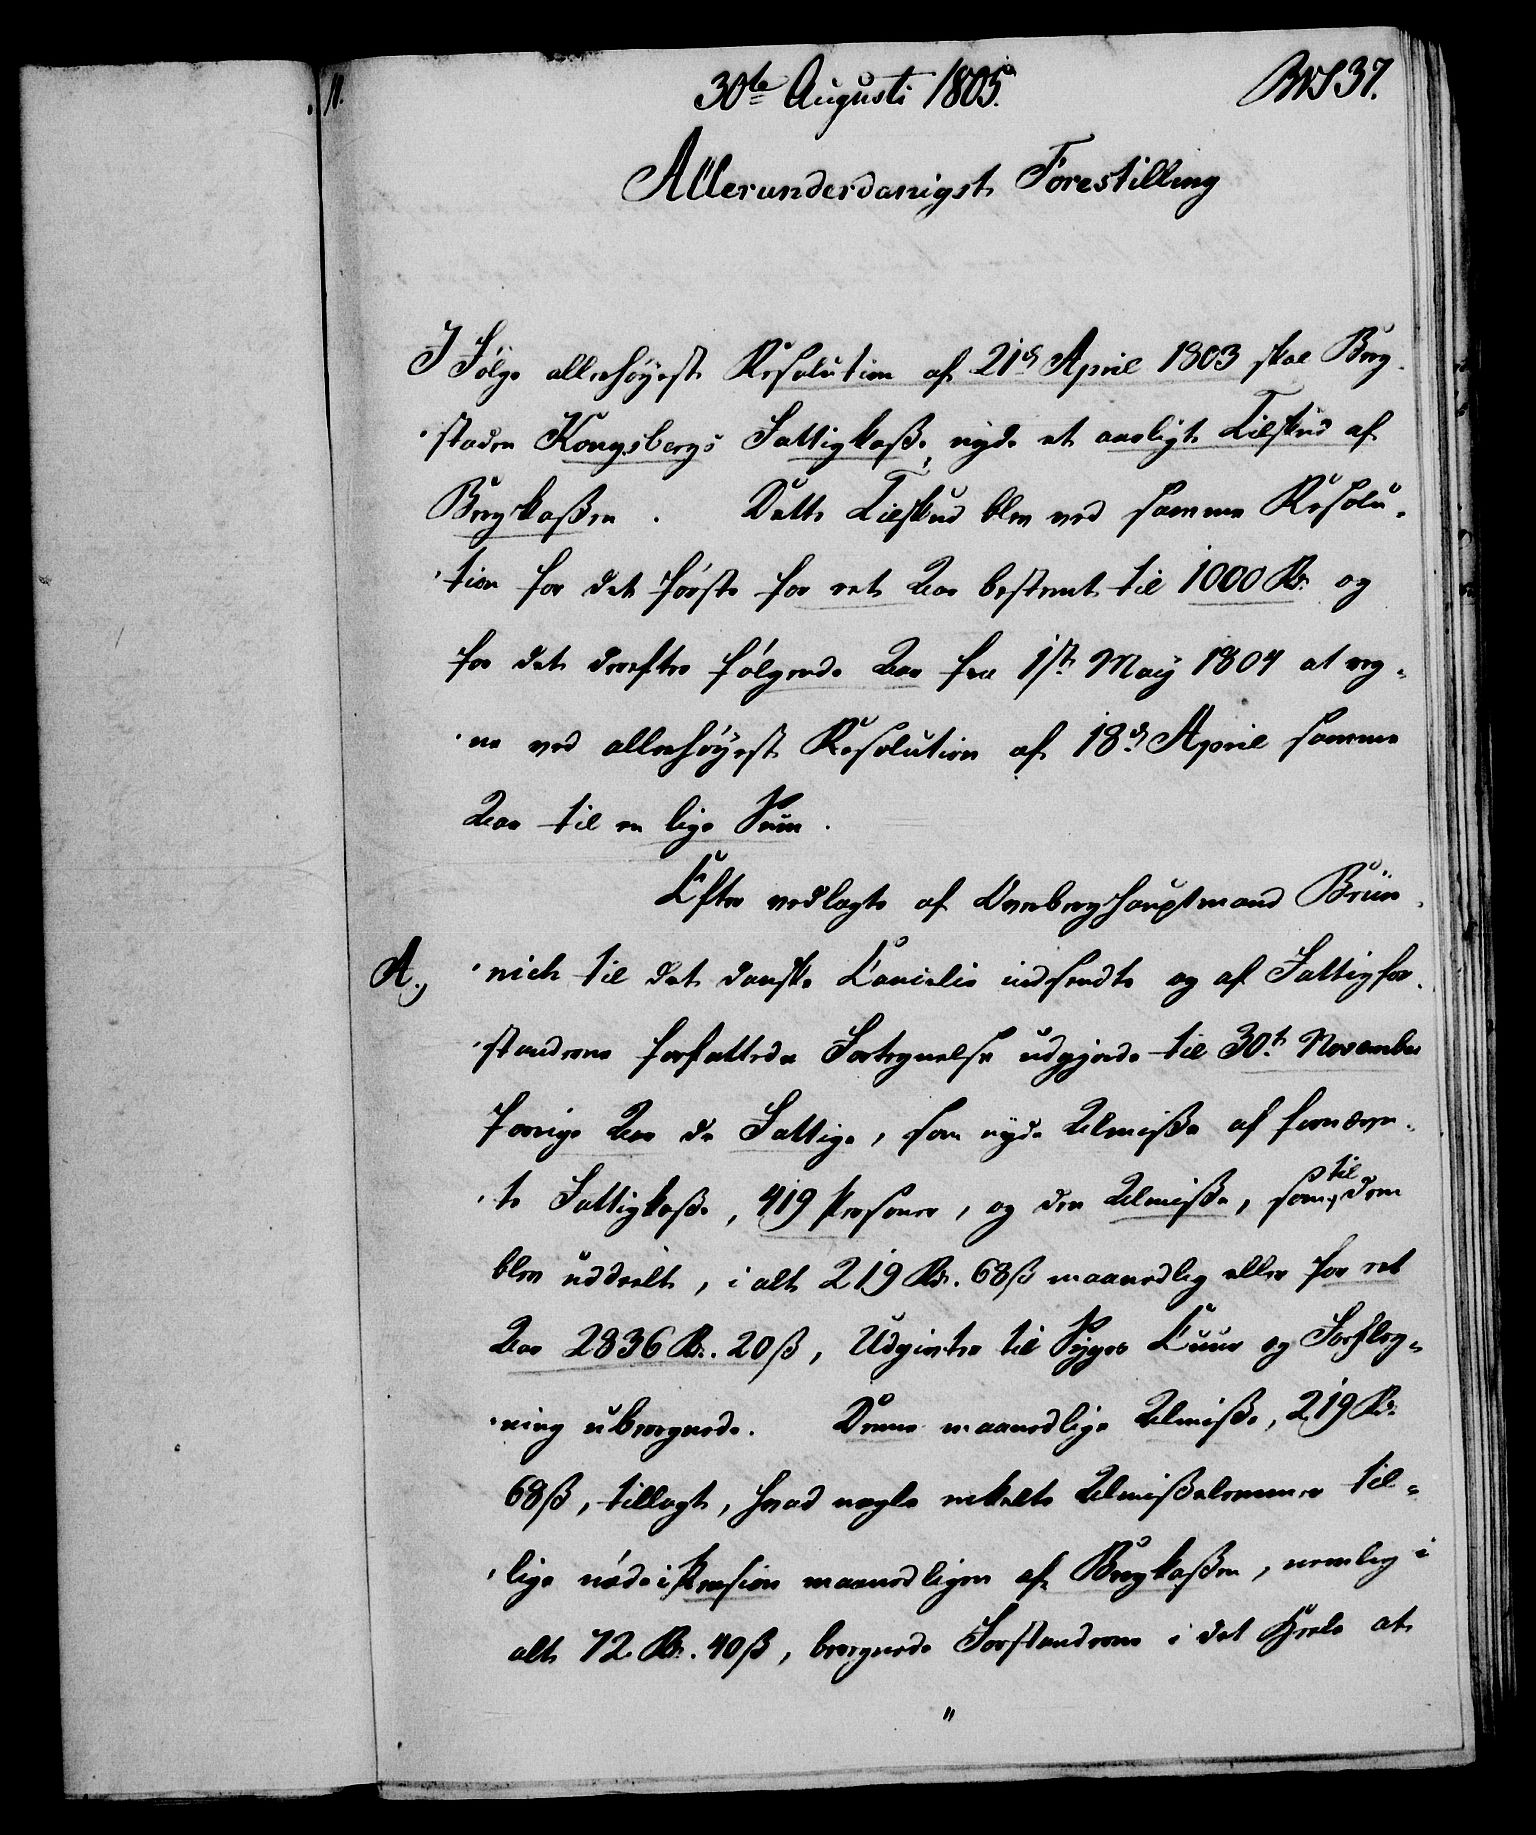 30te Augusti 1805.
No 37.
Allerunderdanigst Forestilling
I Følge allerhøyest Resolution af 21de April 1803 skal Berg-
staden Kongsbergs Fattigkaße, nyde et aarligt Tilskud af
Bergkaßen. Dette Tilskud blev ved samme Resolu-
tion for det første for eet Aar bestemt til 1000 Rd. og
for det derefter følgende Aar fra 1ste May 1804 at reg-
ne ved allerhøyest Resolution af 18de April samme
Aar til en lige Sum.
Efter vedlagte af Overberghauptmand Brün-
A.,
nich til det danske Cancelie indsendte og af Fattigfor-
standerne forfattede Fortegnelse udgjorde til 30te November
forrige Aar de Fattige, som nyde Almiße af fornævn-
te Fattigkaße, 419 Personer, og den Almiße, som til dem
blev uddeelt, i alt 219 Rd. 68 ß maanedlig eller for eet
Aar 2836 Rd. 20 ß, Udgivter til Syges Cuur og Forpleg-
ning uberegnede. Denne maanedlige Almiße, 219 Rd.
68 ß, tillagt, hvad nogle enkelte Almißelemmer til-
lige nøde i Pension maanedligen af Bergkaßen, nemlig i
alt 72 Rd. 40 ß, beregnede Forstanderne i det Heele at